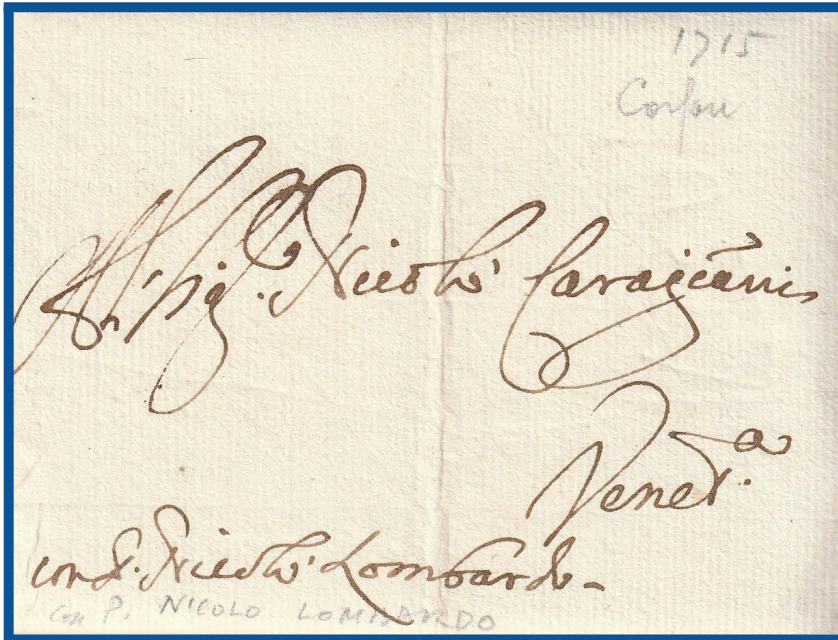 1715
Corfou
Sig.r Nicolò
Venet.a
con P. Nicolò Lombardo
con P. NICOLO LOMBARDO